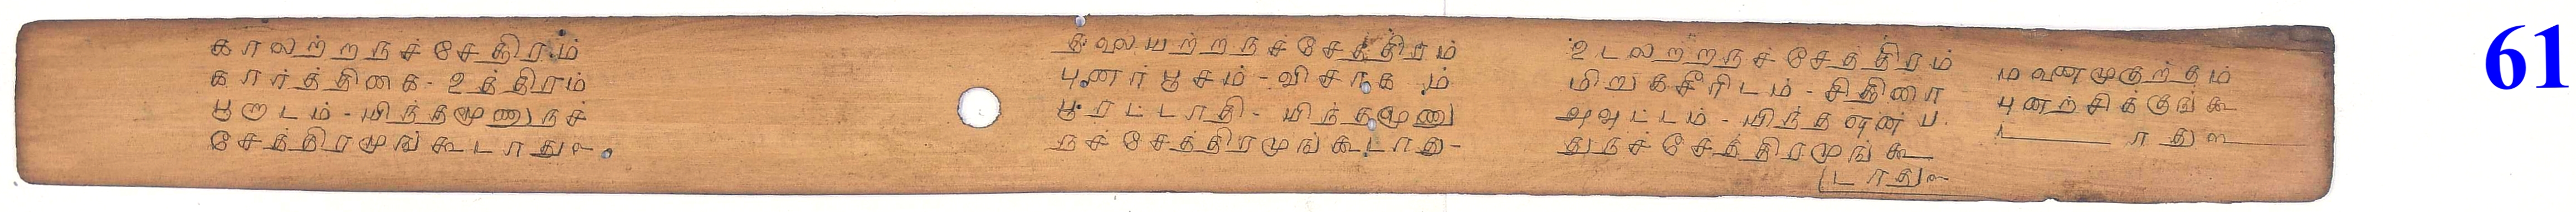 காலற்றநச்சேதிரம்
கார்த்திகை - உத்திரம்
பூறாடம் - யிந்தமூணுநச்
சேத்திரமுங்கூடாதுௐ
தலையற்றநச்சேத்திரம்
புனர்பூசம் - விசாகம்
பூரட்டாதி - யிந்தமூணு
நச்சேத்திரமுங்கூடாது -
உடலற்றநச்சேத்திரம்
மிறுகசீரிடம் - சித்திரை
அவுட்டம் - யிந்த
துநச்சேத்திரமுங்கூ
டாது
புணற்சிக்குங்கூ
61